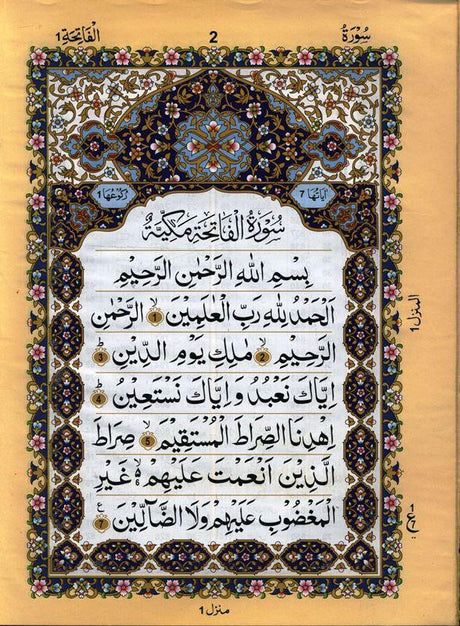 الفاتحة ١
2
سورة
رکوعها ۱
اٰیاتها ۷
سُوْرَةُ الْفَاتِحَةِ مَكِّيَّةٌ
بِسْمِ اللّٰهِ الرَّحْمٰنِ الرَّحِيْمِ
اَلْحَمْدُ لِلّٰهِ رَبِّ الْعٰلَمِيْنَ ۙ ۱ الرَّحْمٰنِ
الرَّحِيْمِ ۙ ۲ مٰلِكِ يَوْمِ الدِّيْنِ ؕ ۳
اِيَّاكَ نَعْبُدُ وَ اِيَّاكَ نَسْتَعِيْنُ ؕ ۴
اِهْدِنَا الصِّرَاطَ الْمُسْتَقِيْمَ ۙ ۵ صِرَاطَ
الَّذِيْنَ اَنْعَمْتَ عَلَيْهِمْ ۙ۬ غَيْرِ
الْمَغْضُوْبِ عَلَيْهِمْ وَلَا الضَّآلِّيْنَ ۷ ع
المنزل ۱
منزل ۱